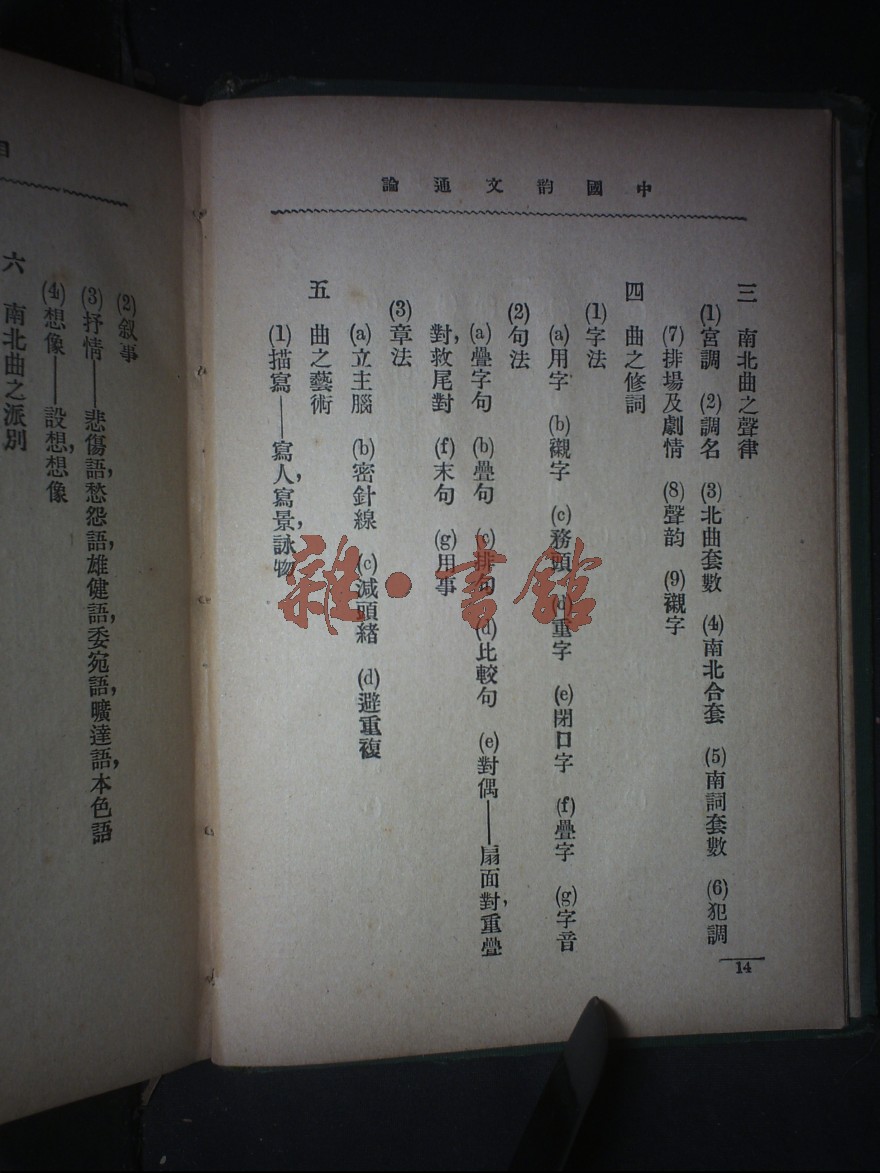 中國韵文通論
三　南北曲之聲律
(1)宮調　(2)調名　(3)北曲套數　(4)南北合套　(5)南詞套數　(6)犯調
(7)排場及劇情　(8)聲韵　(9)襯字
四　曲之修詞
(1)字法
(a)用字　(b)襯字　(c)務頭　(d)重字　(e)閉口字　(f)疊字　(g)字音
(2)句法
(a)疊字句　(b)疊句　(c)排句　(d)比較句　(e)對偶——扇面對，重疊
對，救尾對　(f)末句　(g)用事
(3)章法
(a)立主腦　(b)密針線　(c)減頭緒　(d)避重複
五　曲之藝術
(1)描寫——寫人，寫景，詠物
14
(2)叙事
(3)抒情——悲傷語，愁怨語，雄健語，委宛語，曠達語，本色語
(4)想像——設想，想像
六　南北曲之派別
雜·書館